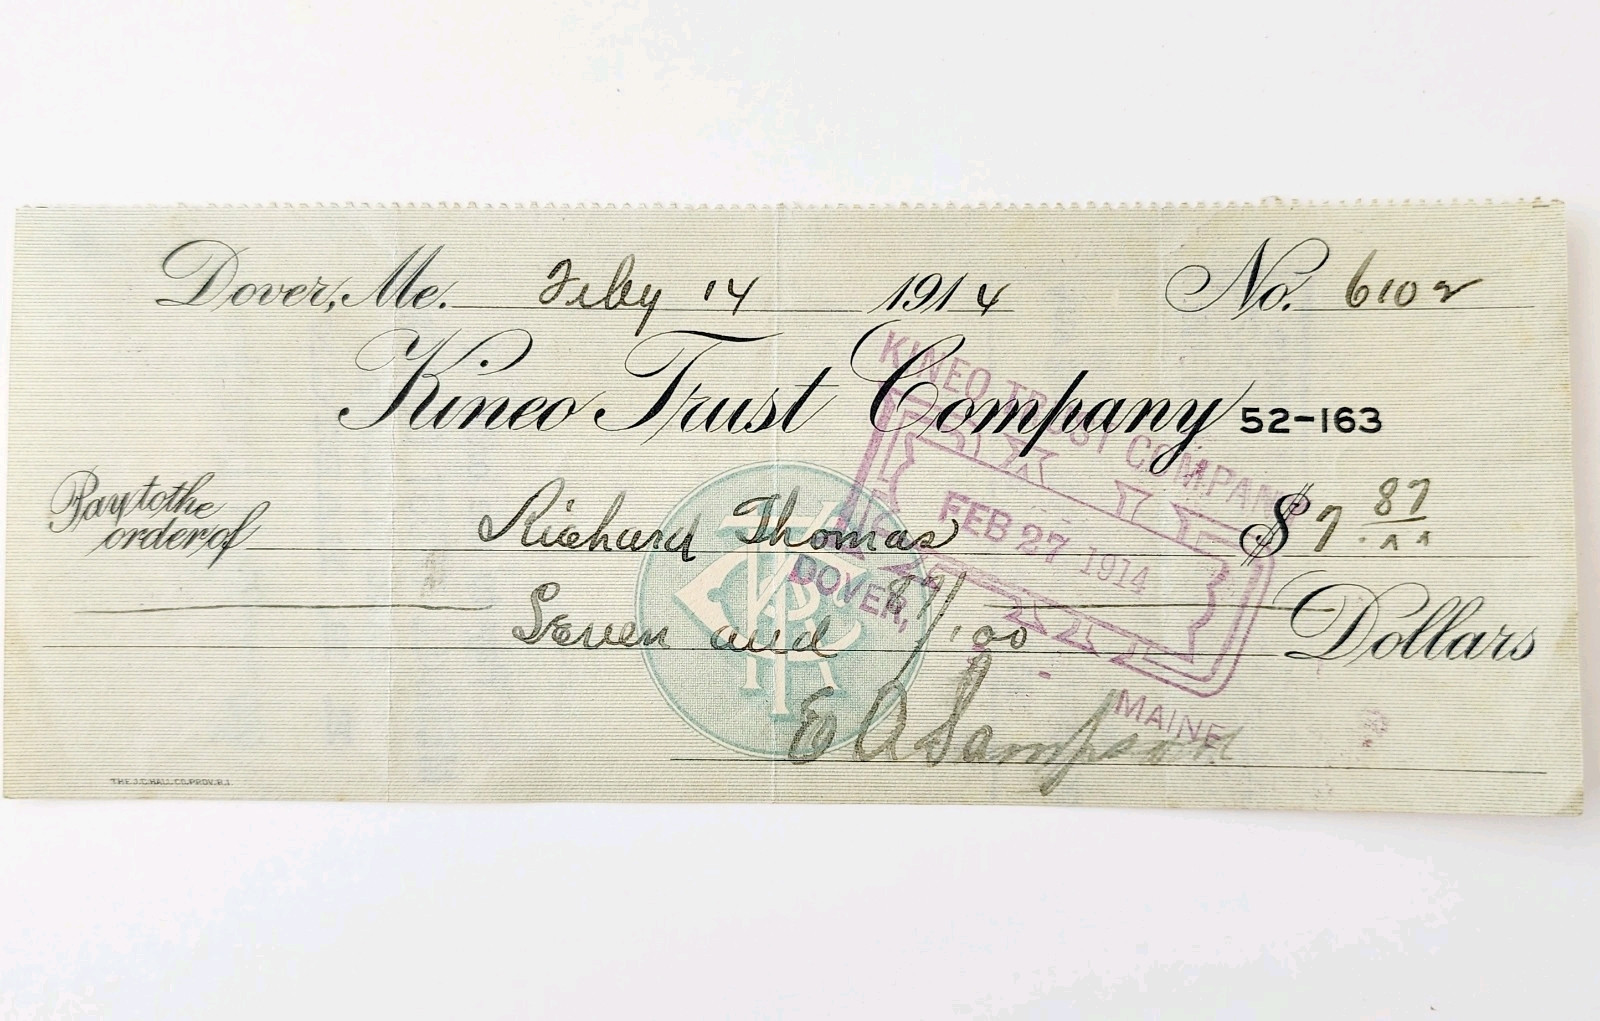 Dover, Me. Feby 14 1914 No. 6102
Kineo Trust Company 52-163
KINEO TRUST COMPANY
Pay to the order of Richard Thomas $7 87/xx
FEB 27 1914
DOVER,
Seven and 87/100 Dollars
MAINE
E A Sampson
THE J.C. HALL CO. PROV. R.I.